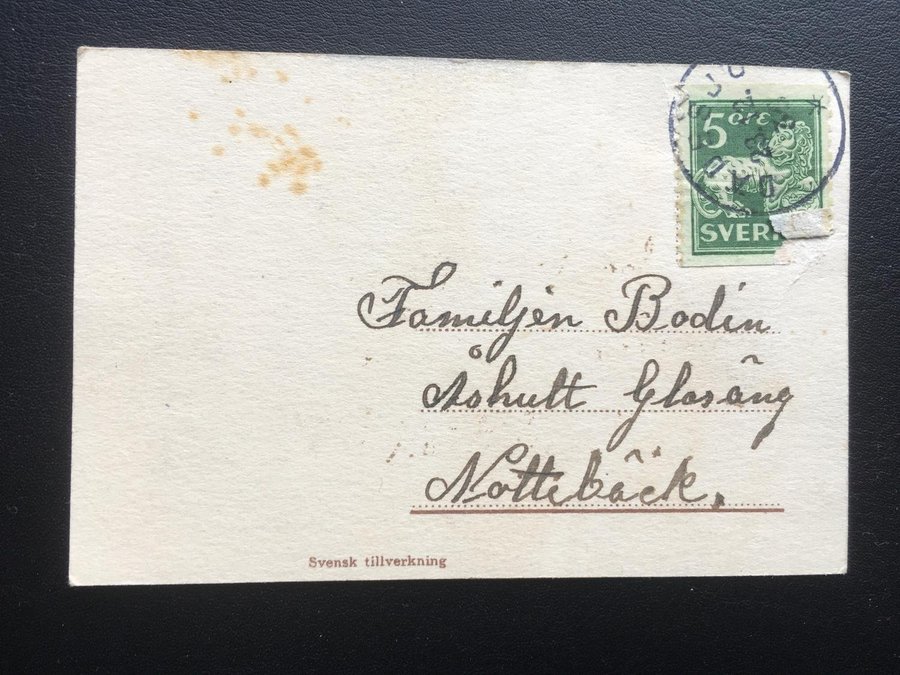 5 ÖRE
SVERI
Familjen Bodin
Åshult Glasäng
Nottebäck.
Svensk tillverkning